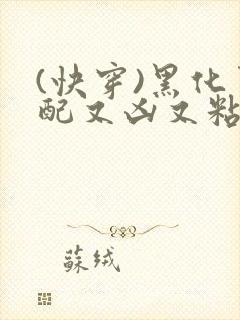 (快穿)黑化
配又凶又粘
蘇绒